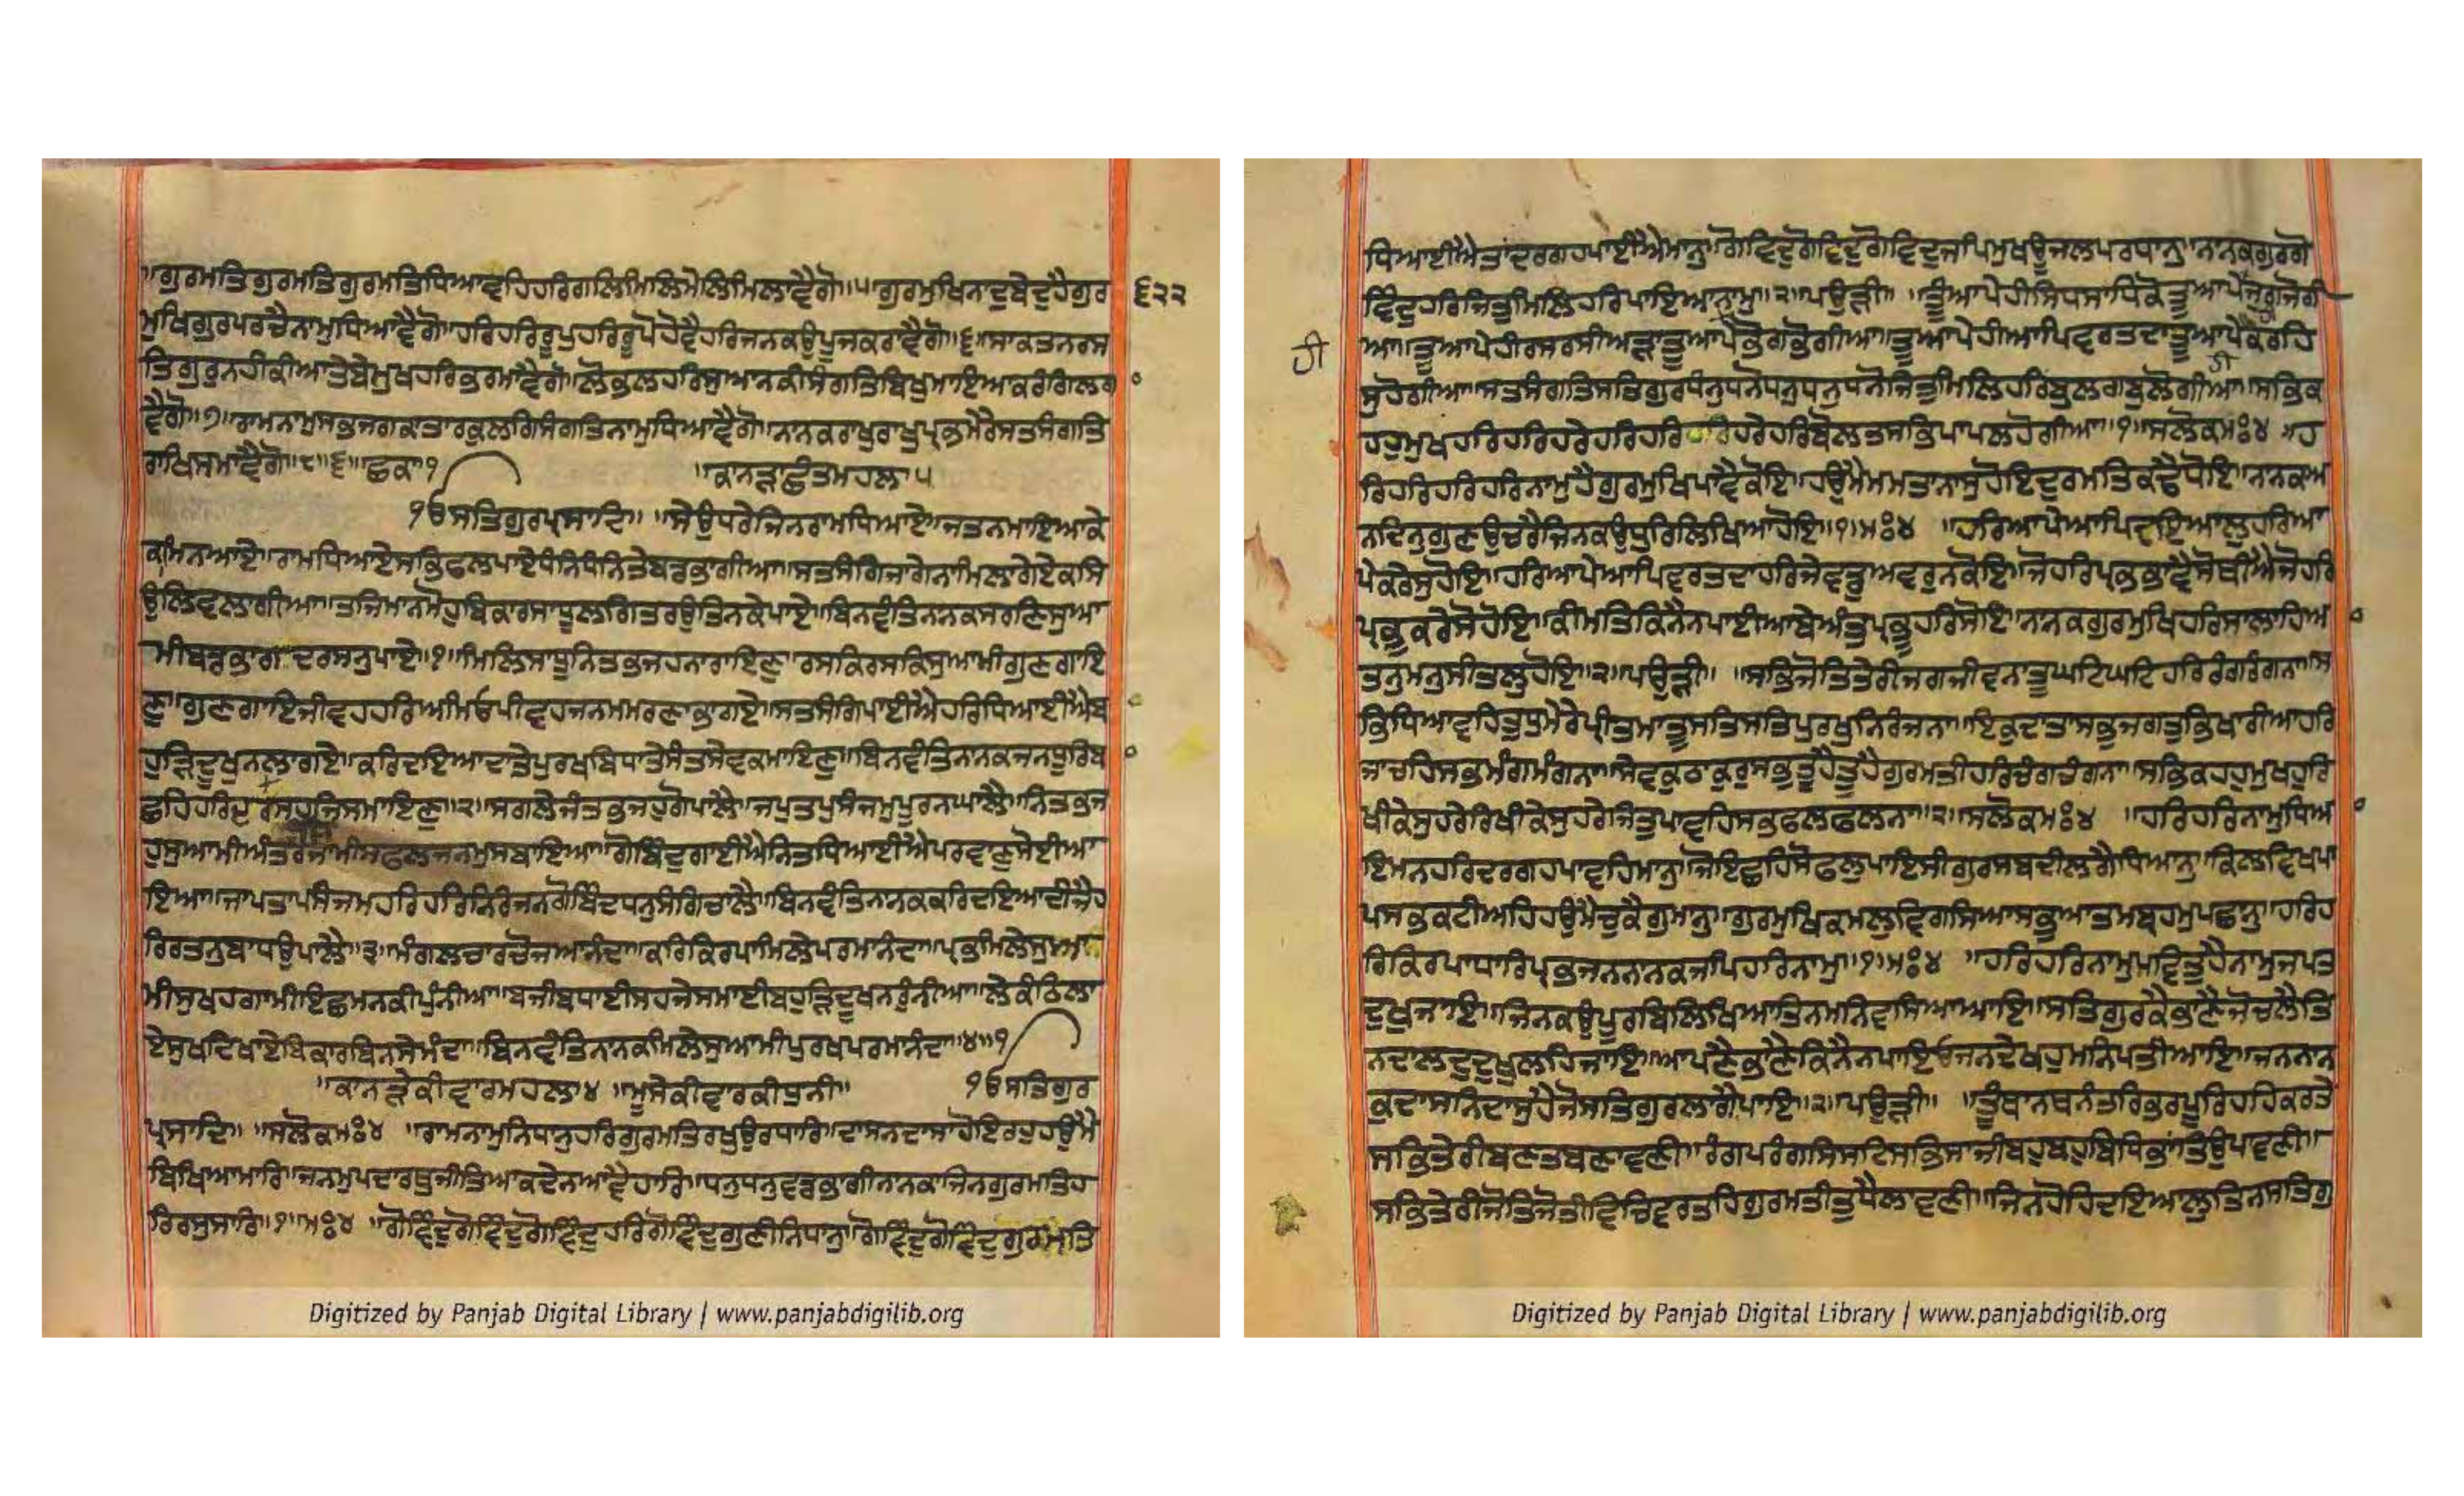 ॥ਗੁਰਮਤਿਗੁਰਮਤਿਗੁਰਮਤਿਧਿਆਵਹਿਹਰਿਗਲਿਮਿਲਿਮੇਲਿਮਿਲਾਵੈਗੋ॥੫॥ਗੁਰਮੁਖਿਨਾਦੁਬੇਦੁਹੈਗੁਰ ੬੨੨
ਮੁਖਿਗੁਰਪਰਚੈਨਾਮੁਧਿਆਵੈਗੋ॥ਹਰਿਹਰਿਰੂਪੁਹਰਿਰੂਪੋਹੋਵੈਹਰਿਜਨਕਉਪੂਜਕਰਾਵੈਗੋ॥੬॥ਸਾਕਤਨਰਸ
ਤਿਗੁਰੁਨਹੀਕੀਆਤੇਬੇਮੁਖਹਰਿਭਰਮਾਵੈਗੋ॥ਲੋਭਲਹਰਿਸੁਆਨਕੀਸੰਗਤਿਬਿਖੁਮਾਇਆਕਰੰਗਿਲਗ
ਵੈਗੋ॥੭॥ਰਾਮਨਾਮੁਸਭਜਗਕਾਤਾਰਕੁਲਗਿਸੰਗਤਿਨਾਮੁਧਿਆਵੈਗੋ॥ਨਾਨਕਰਾਖੁਰਾਖੁਪ੍ਰਭਮੇਰੇਸਤਸੰਗਤਿ
ਰਾਖਿਸਮਾਵੈਗੋ॥੮॥੬॥ਛਕਾ੧ ॥ਕਾਨੜਾਛੰਤਮਹਲਾ੫
ੴਸਤਿਗੁਰਪ੍ਰਸਾਦਿ॥ ॥ਸੇਉਧਰੇਜਿਨਰਾਮਧਿਆਏ॥ਜਤਨਮਾਇਆਕੇ
ਕਾਮਿਨਆਏ॥ਰਾਮਧਿਆਏਸਭਿਫਲਪਾਏਧੰਨਿਧੰਨਿਤੇਬਡਭਾਗੀਆ॥ਸਤਸੰਗਿਜਾਗੇਨਾਮਿਲਾਗੇਏਕਸਿ
ਉਲਿਵਲਾਗੀਆ॥ਤਜਿਮਾਨਮੋਹਬਿਕਾਰਸਾਧੂਲਗਿਤਰਉਤਿਨਕੇਪਾਏ॥ਬਿਨਵੰਤਿਨਨਕਸਰਣਿਸੁਆ
ਮੀਬਡਭਾਗ ਦਰਸਨੁਪਾਏ॥੧॥ਮਿਲਿਸਾਧੂਨਿਤਭਜਹਨਾਰਾਇਣ॥ਰਸਕਿਰਸਕਿਸੁਆਮੀਗੁਣਗਾਇ
ਣ॥ਗੁਣਗਾਇਜੀਵਹਹਰਿਅਮਿਉਪੀਵਹਜਨਮਮਰਣਾਭਾਗਏ॥ਸਤਸੰਗਿਪਾਈਐਹਰਿਧਿਆਈਐਬ
ਹੁੜਿਦੂਖੁਨਲਾਗਏ॥ਕਰਿਦਇਆਦਾਤੇਪੁਰਖਬਿਧਾਤੇਸੰਤਸੇਵਕਮਾਇਣ॥ਬਿਨਵੰਤਿਨਾਨਕਜਨਧੂਰਿਬ
ਛਹਿਹਰਿਦਰਸਹਜਿਸਮਾਇਣ॥੨॥ਸਗਲੇਜੰਤਭਜਹੁਗੋਪਾਲੈ॥ਜਪਤਪਸੰਜਮਪੂਰਨਘਾਲੈ॥ਨਿਤਭਜ
ਹੁਸੁਆਮੀਅੰਤਰਜਾਮੀਸਫਲਜਨਮੁਸਬਾਇਆ॥ਗੋਬਿੰਦੁਗਾਈਐਨਿਤਧਿਆਈਐਪਰਵਾਣੁਸੋਈਆ
ਇਆ॥ਜਾਪਤਾਪਸੰਜਮਹਰਿਹਰਿਨਿਰੰਜਨਗੋਬਿੰਦਧਨੁਸੰਗਿਚਾਲੈ॥ਬਿਨਵੰਤਿਨਾਨਕਕਰਿਦਇਆਦੀਜੈਹ
ਰਿਰਤਨੁਬਾਧਉਪਾਲੈ॥੩॥ਮੰਗਲਚਾਰਚੋਜਆਨੰਦਾ॥ਕਰਿਕਿਰਪਾਮਿਲੇਪਰਮਾਨੰਦਾ॥ਪ੍ਰਭਮਿਲੇਸੁਆ
ਮੀਸੁਖਹਗਾਮੀਇਛਮਨਕੀਪੁੰਨੀਆ॥ਬਜੀਬਧਾਈਸਹਜੇਸਮਾਈਬਹੁੜਿਦੂਖਨਰੁੰਨੀਆ॥ਲੇਕੰਠਿਲਾ
ਏਸੁਖਦਿਖਾਏਬਿਕਾਰਬਿਨਸੇਮੰਦਾ॥ਬਿਨਵੰਤਿਨਾਨਕਮਿਲੇਸੁਆਮੀਪੁਰਖਪਰਮਾਨੰਦਾ॥੪॥੧
॥ਕਾਨੜੇਕੀਵਾਰਮਹਲਾ੪ ॥ਮੂਸੇਕੀਵਾਰਕੀਧੁਨੀ॥ ੴਸਤਿਗੁਰ
ਪ੍ਰਸਾਦਿ॥ ॥ਸਲੋਕਮਃ੪ ॥ਰਾਮਨਾਮੁਨਿਧਾਨੁਹਰਿਗੁਰਮਤਿਰਖੁਉਰਧਾਰਿ॥ਦਾਸਨਦਾਸਾਹੋਇਰਹੁਹਉਮੈ
ਬਿਖਿਆਮਾਰਿ॥ਜਨਮੁਪਦਾਰਥੁਜੀਤਿਆਕਦੇਨਆਵੈਹਾਰਿ॥ਧਨੁਧਨੁਵਡਭਾਗੀਨਾਨਕਾਜਿਨਗੁਰਮਤਿਹ
ਰਿਰਸੁਸਾਰਿ॥੧॥ਮਃ੪ ॥ਗੋਵਿੰਦੁਗੋਵਿੰਦੁਗੋਵਿੰਦੁਹਰਿਗੋਵਿੰਦੁਗੁਣੀਨਿਧਾਨੁ॥ਗੋਵਿੰਦੁਗੋਵਿੰਦੁਗੁਰਮਤਿ
Digitized by Panjab Digital Library | www.panjabdigilib.org
ਧਿਆਈਐਤਾਂਦਰਗਹਪਾਈਐਮਾਨੁ॥ਗੋਵਿਦੁਗੋਵਿਦੁਗੋਵਿਦੁਜਪਿਮੁਖਊਜਲਪਰਧਾਨੁ॥ਨਾਨਕਗੁਰਗੋ
ਵਿੰਦੁਹਰਿਜਿਤੁਮਿਲਿਹਰਿਪਾਇਆਨਾਮੁ॥੨॥ਪਉੜੀ॥ ॥ਤੂੰਆਪੇਹੀਸਿਧਸਾਧਿਕੋਤੂਆਪੇਜੁਗਜੋਗੀ
ਆ॥ਤੂਆਪੇਹੀਰਸਰਸੀਅੜਾਤੂਆਪੇਭੋਗਭੋਗੀਆ॥ਤੂਆਪੇਹੀਆਪਿਵਰਤਦਾਤੂਆਪੇਕਰਹਿ
ਹੀ
ਸੁਹੋਗੀਆ॥ਸਤਸੰਗਤਿਸਤਿਗੁਰਧੰਨੁਧਨੋਧਨੁਧਨੁਧਨੋਜਿਤੁਮਿਲਿਹਰਿਬੁਲਗਬੁਲੋਗੀਆ॥ਸਭਿਕ
ਹਹੁਮੁਖਹਰਿਹਰਿਹਰੇਹਰਿਹਰਿਹਰਿਹਰੇਹਰਿਬੋਲਤਸਭਿਪਾਪਲਹੋਗੀਆ॥੧॥ਸਲੋਕਮਃ੪ ॥ਹ
ਰਿਹਰਿਹਰਿਹਰਿਨਾਮੁਹੈਗੁਰਮੁਖਿਪਾਵੈਕੋਇ॥ਹਉਮੈਮਮਤਾਨਾਸੁਹੋਇਦੁਰਮਤਿਕਢੈਧੋਇ॥ਨਨਕਅ
ਨਦਿਨੁਗੁਣਉਚਰੈਜਿਨਕਉਧੁਰਿਲਿਖਿਆਹੋਇ॥੧॥ਮਃ੪ ॥ਹਰਿਆਪੇਆਪਿਦਇਆਲੁਹਰਿਆ
ਪੇਕਰੇਸੁਹੋਇ॥ਹਰਿਆਪੇਆਪਿਵਰਤਦਾਹਰਿਜੇਵਡੁਅਵਰੁਨਕੋਇ॥ਜੋਹਰਿਪ੍ਰਭਭਾਵੈਸੋਥੀਐਜੋਹਰਿ
ਪ੍ਰਭੁਕਰੇਸੋਹੋਇ॥ਕੀਮਤਿਕਿਨੈਨਪਾਈਆਬੇਅੰਤੁਪ੍ਰਭੂਹਰਿਸੋਇ॥ਨਾਨਕਗੁਰਮੁਖਿਹਰਿਸਾਲਾਹਿਅ
ਤਨੁਮਨੁਸੀਤਲੁਹੋਇ॥੨॥ਪਉੜੀ॥ ॥ਸਭਿਜੋਤਿਤੇਰੀਜਗਜੀਵਨਾਤੂਘਟਿਘਟਿਹਰਿਰੰਗਰੰਗਨਾ॥ਸ
ਭਿਧਿਆਵਹਿਤੁਧੁਮੇਰੇਪ੍ਰੀਤਮਾਤੂਸਤਿਸਤਿਪੁਰਖੁਨਿਰੰਜਨਾ॥ਇਕੁਦਾਤਾਸਭੁਜਗਤੁਭਿਖਾਰੀਆਹਰਿ
ਜਾਚਹਿਸਭਮੰਗਮੰਗਨਾ॥ਸੇਵਕੁਠਾਕੁਰੁਸਭੁਤੂਹੈਤੂਹੈਗੁਰਮਤੀਹਰਿਚੰਗਚੰਗਨਾ॥ਸਭਿਕਹਹੁਮੁਖਹੁਰਿ
ਖੀਕੇਸੁਹਰੇਰਿਖੀਕੇਸੁਹਰੇਜਿਤੁਪਾਵਹਿਸਭਫਲਫਲਨਾ॥੨॥ਸਲੋਕਮਃ੪ ॥ਹਰਿਹਰਿਨਾਮੁਧਿਅ
ਇਮਨਹਰਿਦਰਗਹਪਾਵਹਿਮਾਨੁ॥ਜੋਇਛਹਿਸੋਫਲੁਪਾਇਸੀਗੁਰਸਬਦੀਲਗੈਧਿਆਨੁ॥ਕਿਲਵਿਖਪਾ
ਪਸਭਕਟੀਅਹਿਹਉਮੈਚੁਕੈਗੁਮਾਨੁ॥ਗੁਰਮੁਖਿਕਮਲੁਵਿਗਸਿਆਸਭੁਆਤਮਬ੍ਰਹਮੁਪਛਾਨੁ॥ਹਰਿਹ
ਰਿਕਿਰਪਾਧਾਰਿਪ੍ਰਭਜਨਨਾਨਕਜਪਿਹਰਿਨਾਮੁ॥੧॥ਮਃ੪ ॥ਹਰਿਹਰਿਨਾਮੁਪਵਿਤੁਹੈਨਾਮੁਜਪਤ
ਦੁਖੁਜਾਇ॥ਜਿਨਕਉਪੂਰਬਿਲਿਖਿਆਤਿਨਮਨਿਵਸਿਆਆਇ॥ਸਤਿਗੁਰਕੈਭਾਣੈਜੋਚਲੈਤਿ
ਨਦਾਲਦੁਦੁਖੁਲਹਿਜਾਇ॥ਆਪਣੈਭਾਣੈਕਿਨੈਨਪਾਇਓਜਨਦੇਖਹੁਮਨਿਪਤੀਆਇ॥ਜਨਨਾਨ
ਕੁਦਾਸਨਿਦਾਸੁਹੈਜੋਸਤਿਗੁਰਲਾਗੇਪਾਇ॥੨॥ਪਉੜੀ॥ ॥ਤੂੰਥਾਨਥਨੰਤਰਿਭਰਪੂਰਿਹਹਿਕਰਤੇ
ਸਭਿਤੇਰੀਬਣਤਬਣਾਵਣੀ॥ਰੰਗਪਰੰਗਸਿਸਟਿਸਭਿਸਾਜੀਬਹੁਬਹੁਬਿਧਿਭਾਂਤਿਉਪਾਵਣੀ॥
ਸਭਿਤੇਰੀਜੋਤਿਜੋਤੀਵਿਚਿਵਰਤਹਿਗੁਰਮਤੀਤੁਧੈਲਾਵਣੀ॥ਜਿਨਹੋਹਿਦਇਆਲੁਤਿਨਸਤਿਗੁ
Digitized by Panjab Digital Library | www.panjabdigilib.org